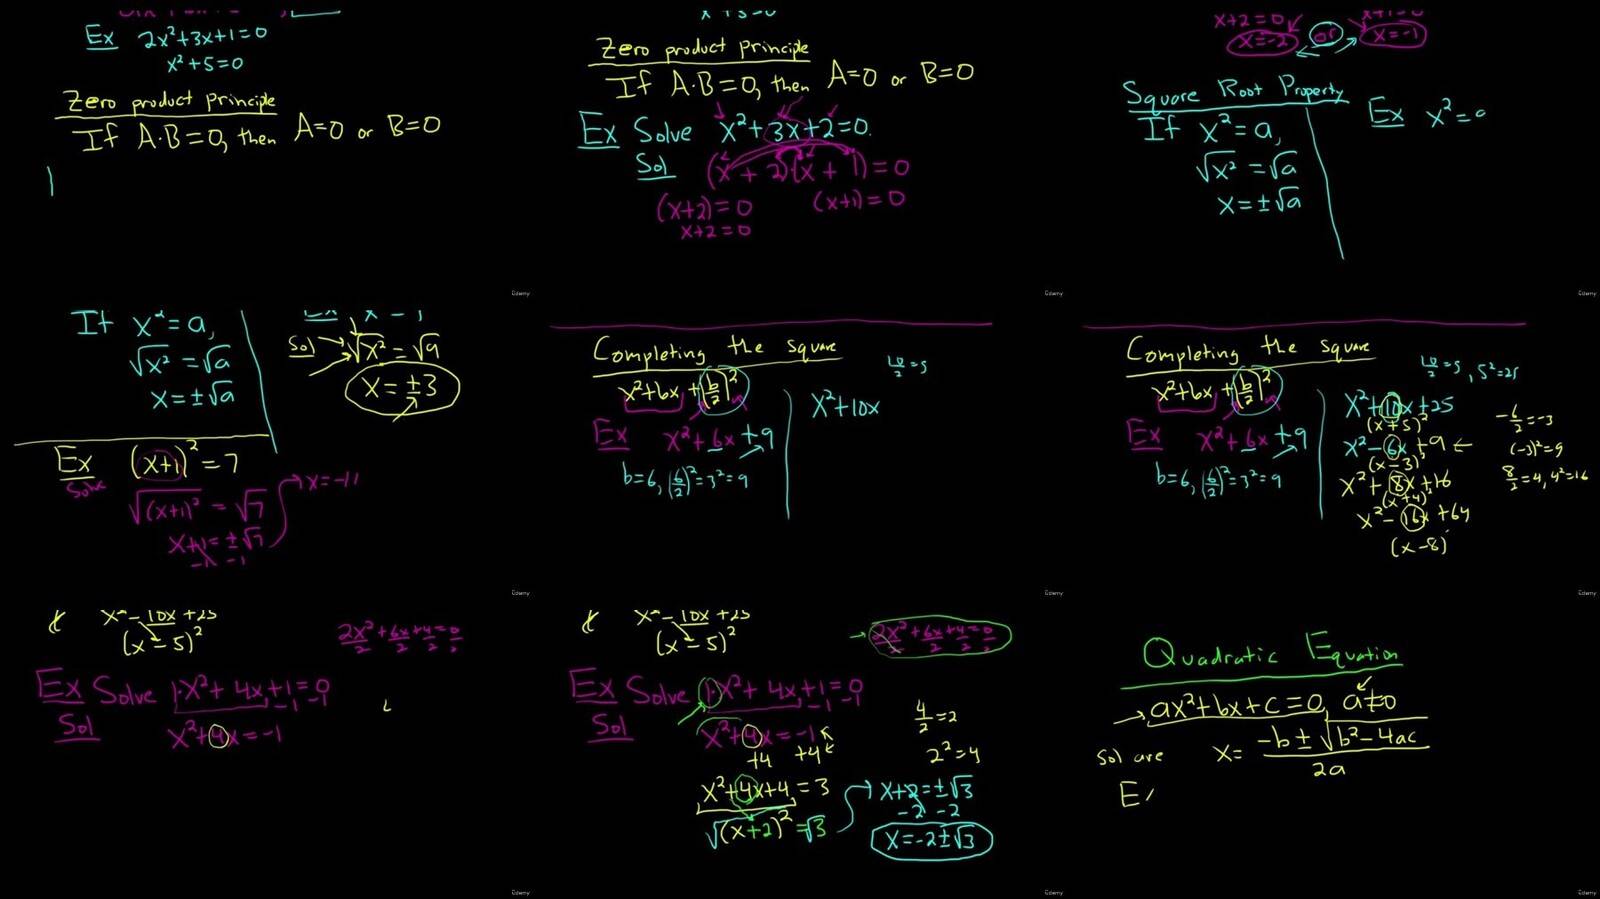 Ex 2x²+3x+1=0
x²+5=0
Zero product principle
If A·B=0, then A=0 or B=0
Zero product principle
If A·B=0, then A=0 or B=0
Ex Solve x²+3x+2=0.
Sol (x + 2)(x + 1)=0
(x+2)=0 (x+1)=0
x+2=0
Udemy
x+2=0
x=-2 or x=-1
Square Root Property
If x²=a,
√x² = √a
x=±√a
Ex x²=
Udemy
If x²=a,
√x² = √a
x=±√a
Sol √x² = √9
x=±3
Ex (x+1)²=7
Solve
√(x+1)² = √7
x+1=±√7
-1 -1
x=-1
Udemy
Completing the square
x²+6x+(b/2)²
Ex x²+6x+9
b=6, (6/2)²=3²=9
10/2=5
x²+10x
Udemy
Completing the square
x²+6x+(b/2)²
Ex x²+6x+9
b=6, (6/2)²=3²=9
10/2=5, 5²=25
x²+10x+25
(x+5)²
x²-6x+9
(x-3)²
x²+8x+16
(x+4)²
x²-16x+64
(x-8)
-6/2=-3
(-3)²=9
8/2=4, 4²=16
Udemy
x²-10x+25
(x-5)²
2x²/2+6x/2+4/2=0/2
Ex Solve 1·x²+4x+1=0
-1 -1
Sol x²+4x=-1
Udemy
x²-10x+25
(x-5)²
2x²/2+6x/2+4/2=0/2
Ex Solve 1·x²+4x+1=0
-1 -1
Sol x²+4x=-1
+4 +4
x²+4x+4=3
√(x+2)²=√3
4/2=2
2²=4
x+2=±√3
-2 -2
x=-2±√3
Udemy
Quadratic Equation
ax²+bx+c=0, a≠0
Sol are x= (-b±√(b²-4ac))/2a
E
Udemy